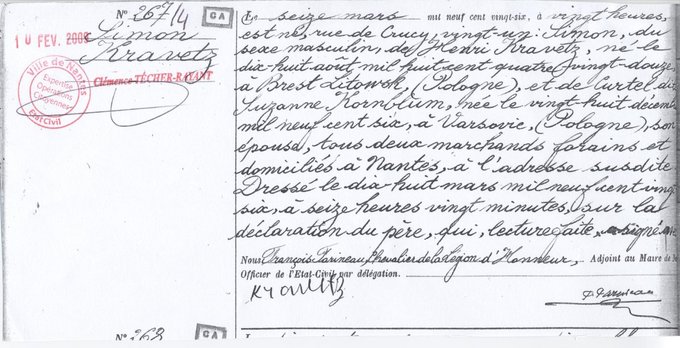 N° 267/4
GA
10 FEV. 2009
Simon
Kravetz
Clémence TÉCHER-RAYANT
Ville de Nantes
Expertise
Opérations
Citoyennes
Etat Civil
Le seize mars mil neuf cent vingt-six, à vingt heures,
est né, rue de Crucy, vingt-un: Simon, du
sexe masculin, de Henri Kravetz, né le
dix-huit août mil huit cent quatre vingt-douze
à Brest Litowsk, (Pologne), et de Curtel dit
Suzanne Kornblum, née le vingt-huit décem
mil neuf cent six, à Varsovie, (Pologne), son
épouse, tous deux marchands forains et
domiciliés à Nantes, à l'adresse susdite.
Dressé le dix-huit mars mil neuf cent vingt
six, à seize heures vingt minutes, sur la
déclaration du père, qui, lecture faite, a signé
Nous François Farineau, Chevalier de la Légion d'Honneur, Adjoint au Maire de
Officier de l'Etat-Civil par délégation.
N° 268
GA